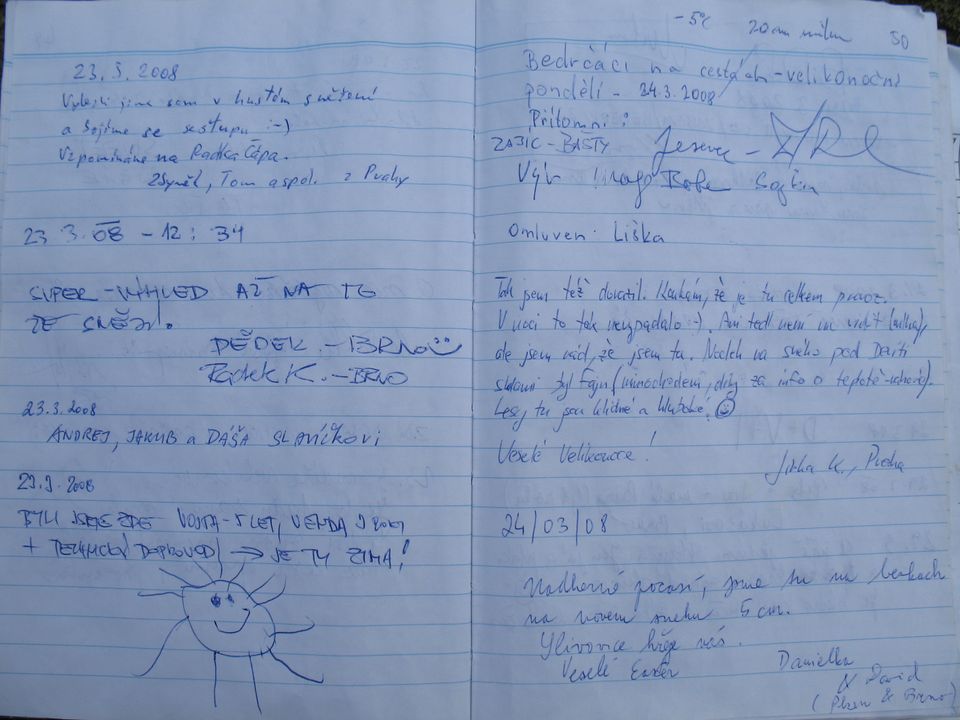 23.3.2008
Vylezli jsme sem v hustém sněžení
a bojíme se sestupu :-)
Vzpomínáme na Radka Čápa.
Zbyněk, Tom a spol. z Prahy
23 3.08 - 12:34
SUPER - VÝHLED AŽ NA TO
ŽE SNĚŽÍ.
DĚDEK. - BRNO
Radek K. - BRNO
23.3.2008
ANDREJ, JAKUB a DÁŠA SLAVÍČKOVI
23.3.2008
BYLI JSME ZDE VOJTA - 5 LET, VENDA 3 ROKY
+ TECHNICKÝ DOPROVOD → JE TU ZIMA!
-5°C 20cm 50
Bedrčáci na cestách - velikonoční
pondělí - 24.3.2008
Přítomni:
ZABIC - BAŠTY
Omluven: Liška
Tak jsem též dorazil. Koukám, že je tu celkem provoz.
V noci to tak nevypadalo :-). Ani teď není nic vidět (mlha),
ale jsem rád, že jsem tu. Nocleh na sněhu pod Devíti
skalami byl fajn (mimochodem, díky za info o teplotě - nahoře).
Lesy tu jsou klidné a hluboké!
Veselé Velikonoce!
Jirka K., Praha
24/03/08
Nádherné počasí, jsme tu na bežkach
na novem snehu 5 cm.
Slivovice hřeje nás.
Veselé Easter
Danielka
& David
(Plzen & Brno)